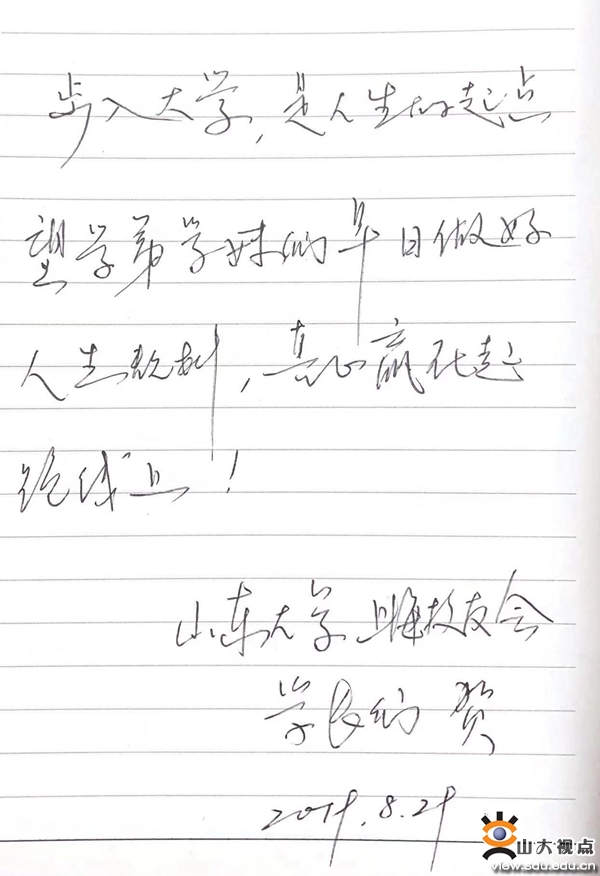 步入大学，是人生的起点
望学弟学妹们早日做好
人生规划，真正赢在起
跑线上！
山东大学上海校友会
学长们 贺
2019.8.29
山大视点
view.sdu.edu.cn